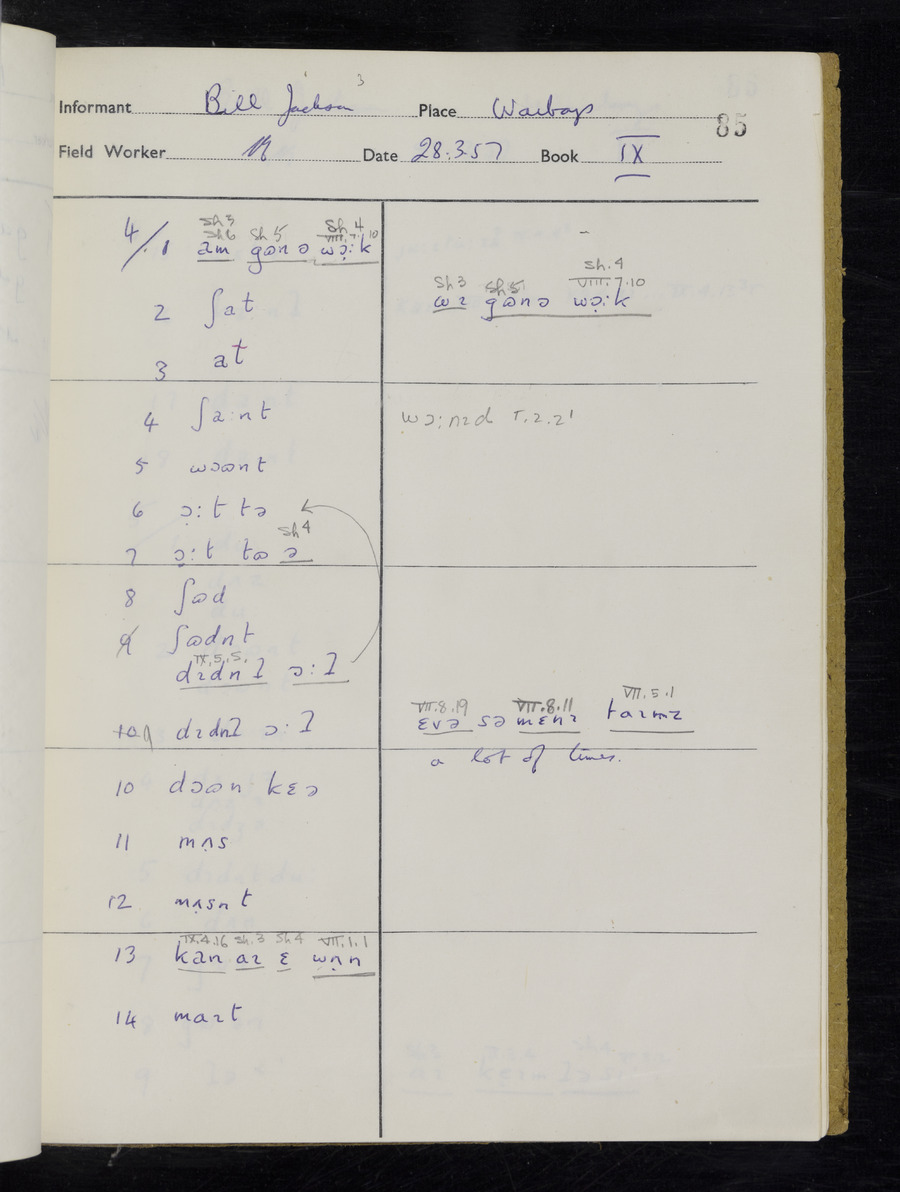 Informant Bill Jackson 3 Place Warboys
85
Field Worker Date 28.3.57 Book IX
Sh 3
Sh6 Sh 5 Sh. 4 VIII.7.10
4/1 am gɷnə wə:k
–
Sh 3 Sh.5. Sh.4 VIII.7.10
wɪ gɷnə wə:k
2 ʃat
3 at
4 ʃa:nt
wə:nɪd
5 wəɷnt
6 ɔ:t tə
Sh 4
7 ɔ:t tɷ ə
8 ʃɷd
9 ʃɷdnt
IX.5.5.
dɪdnl ɔ:l
9 dɪdnl ɔ:l
VII.8.19 VII.8.11 VII.5.1
ɛvə sə mɛnɪ taɪmz
a lot of times.
10 dəɷn kɛə
11 mʌs
12 mʌsnt
IX.4.16 Sh.3 Sh 4 VII.1.1
13 kan aɪ ɛ wʌn
14 maɪt